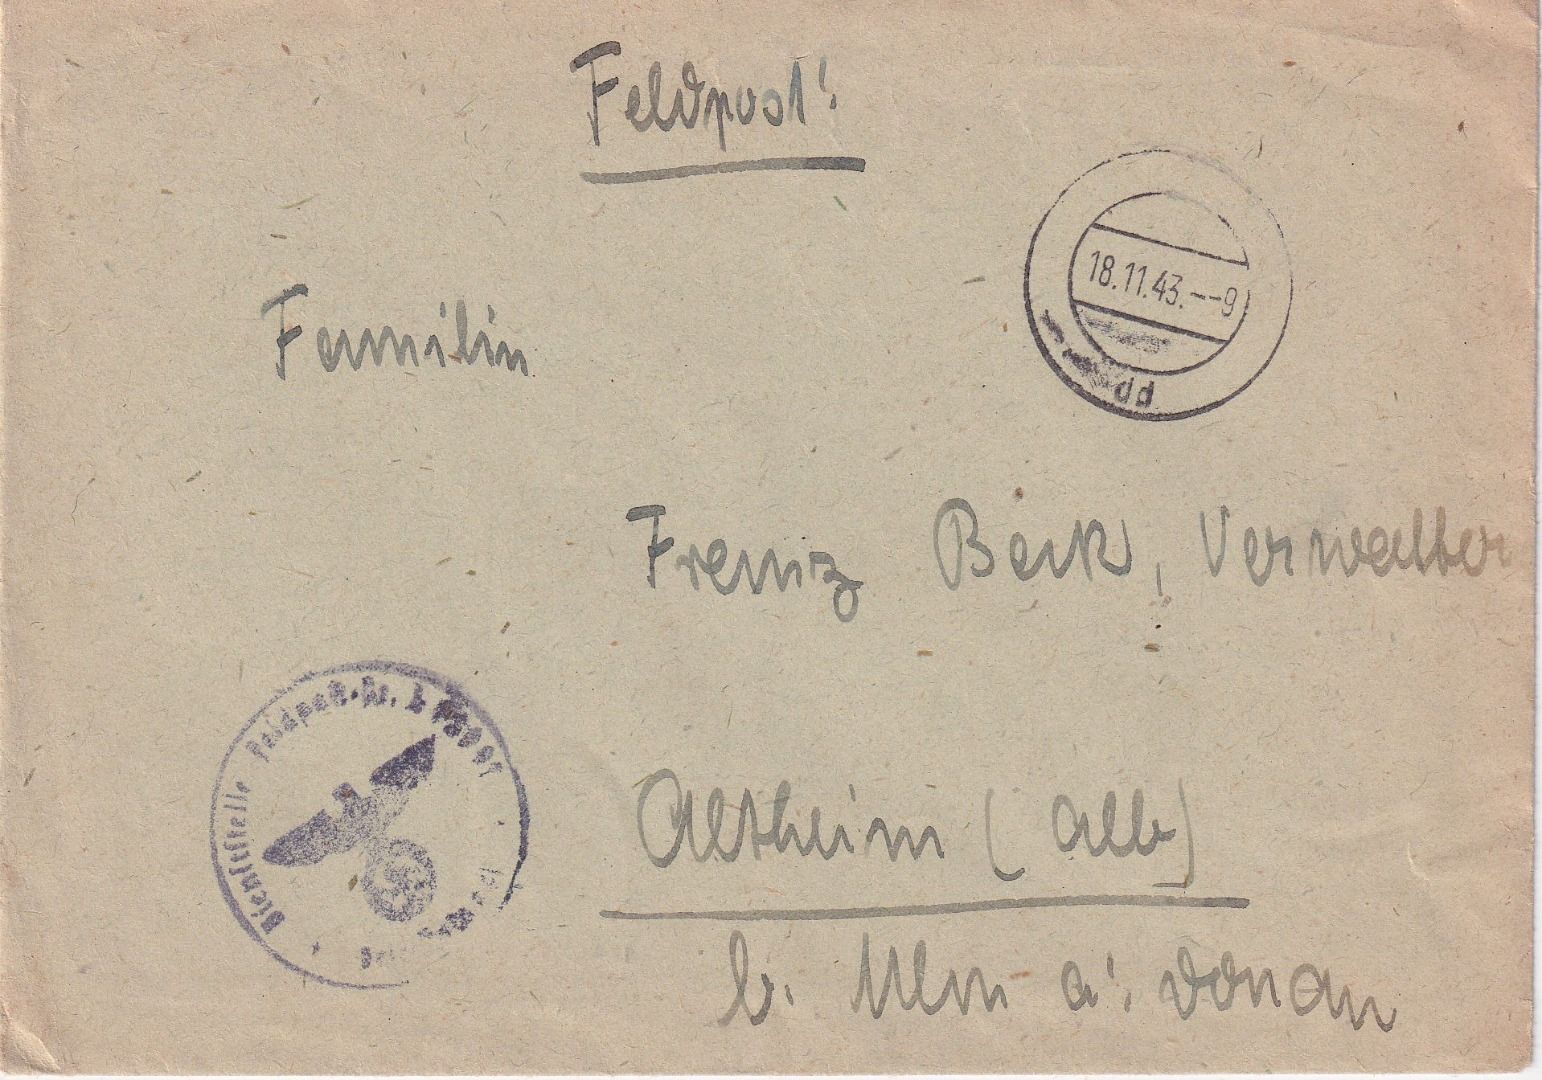 Feldpost!
18.11.43.--9
dd
Familie
Franz Beck, Verwalter
Dienststelle Feldpost-Nr.
Altheim (Alb)
b. Ulm a. Donau